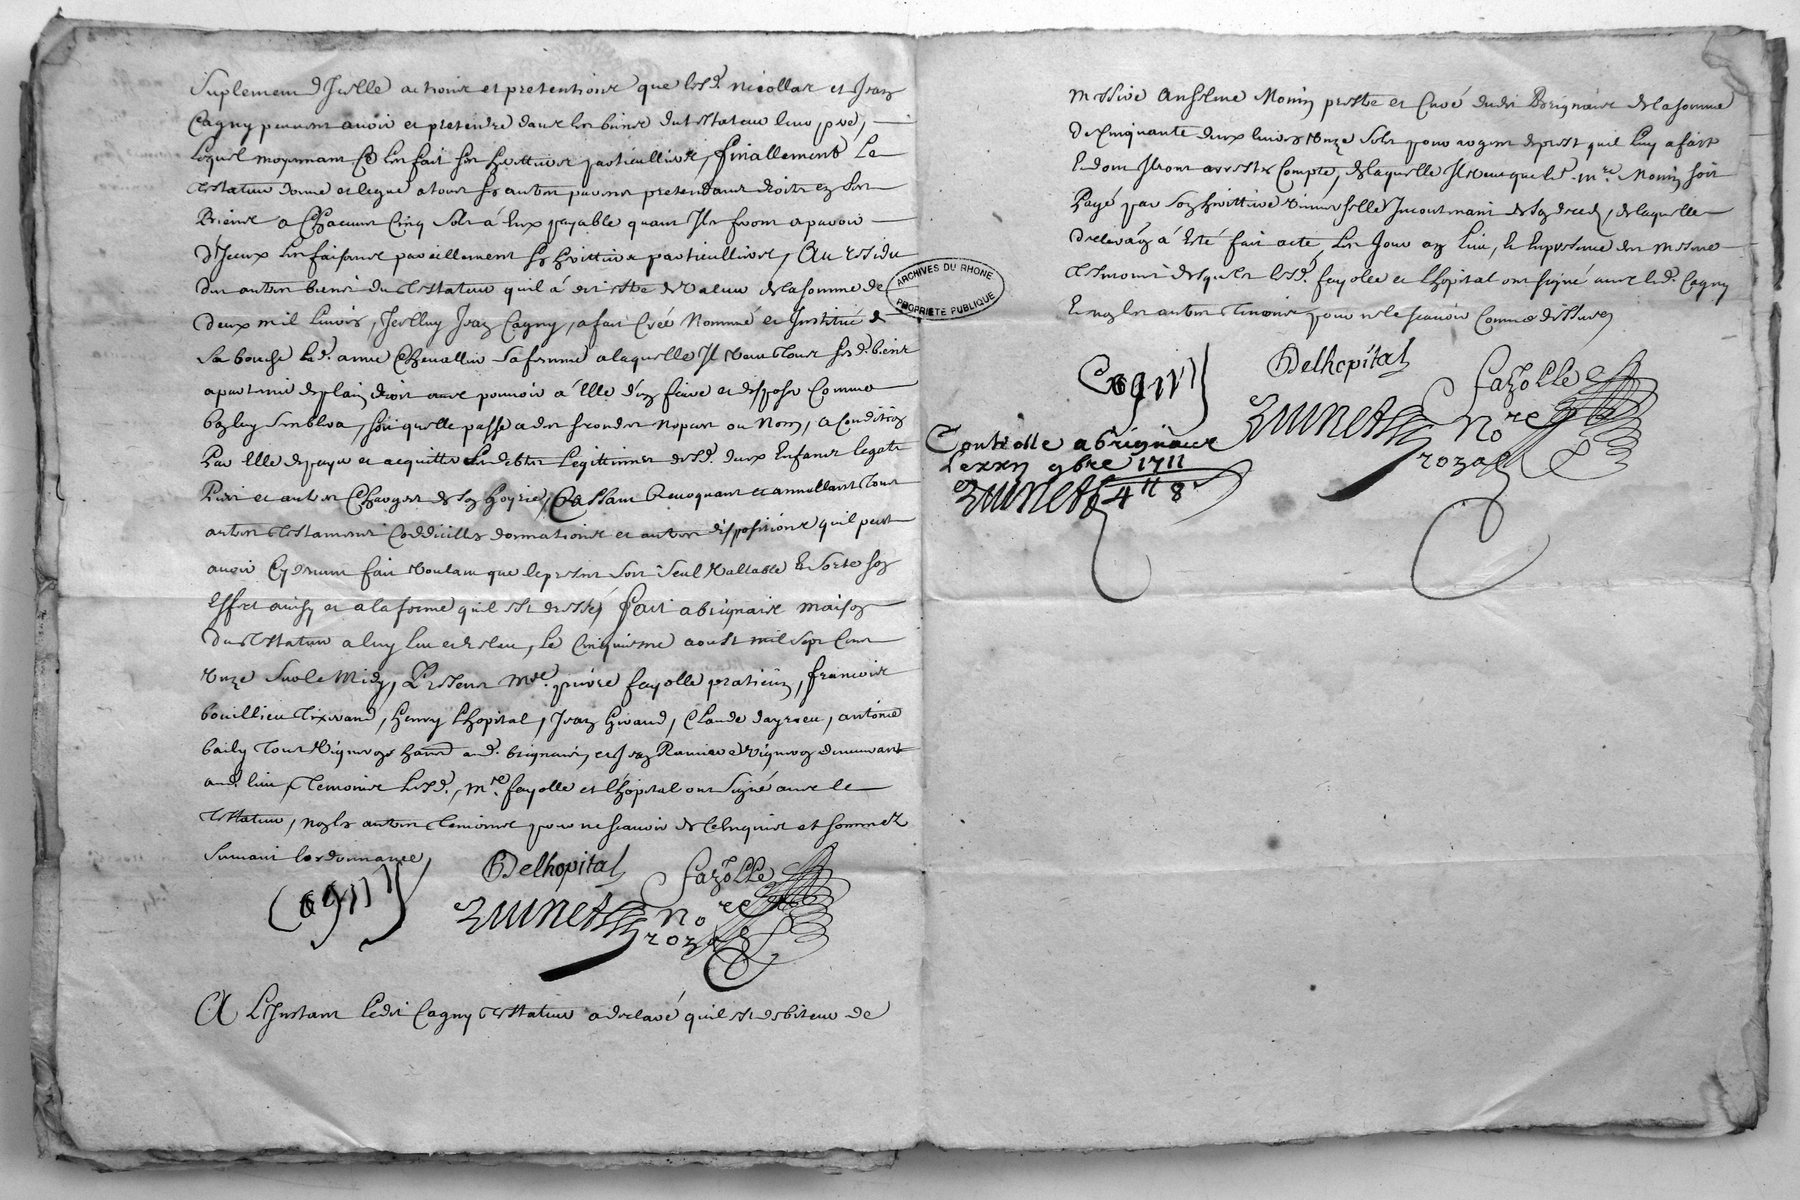 Suplement d'Icelle actions et pretentions que lesd. nicollas et Jean
Cagny peuvent avoir et pretendre dans les biens dud testateur leur pere,
Lequel moyennant ce les fait ses heritiers particulliers, finallement Le
testateur donne et legue a tous ses autres parens pretendans droits en ses
Biens a Chacun Cinq sols á Eux payable quant Ils feront aparoir
d'Iceux les faisans pareillement ses heritiers particulliers, Au residu
des autres biens du testateur quil á dit estre de valleur de la somme de
deux mil livres, Icelluy Jean Cagny, a fait Créé Nommé et Institué de
sa bouche lad. anne Chevallier sa femme a laquelle Il veut tous sesd. biens
apartenir de plain droit avec pouvoir á Elle d'en faire et disposer Comme
bon luy semblera, soit quelle passe a des secondes nopces ou Non, a Condition
Par Elle de payer et acquitter les debtes Legittimes desd. deux Enfans legats
Pies et autres Charges de son hoyrie, Cassant Revoquant et annullant tous
autres testamens Coddicilles donnations et autres dispositions quil peut
avoir Cydevant fait voulant que le present soit seul vallable Et sorte son
Effect ainsy et a la forme quil est dressé, fait a brignais maison
du testateur a luy leu et releu, Le Cinquieme aoust mil sept Cent
Unze sur le Midy, Presens Mre. pierre fayolle praticien, francois
bouillieu tixerand, henry Lhopital, Jean Giraud, Claude dayrieu, antoine
baily tous Vignerons hants aud. brignais, et Jean Raniere Vigneron demeurant
aud. lieu, temoins Lesd. Mre. fayolle et Lhopital ont signé avec le
testateur, non les autres temoins pour ne scavoir de ce Enquis et sommez
suivant lordonnance,
Cagny
Delhopital
fayolle
Brunet
Nore
royal
A L'Instant Ledit Cagny testateur a declaré quil est debiteur de
Messire Anselme Monin prestre et Curé dudit Brignais de la somme
de Cinquante deux livres Unze sols pour argent de prest quil luy a fait
Et dont Ils ont arresté Compte, de laquelle Il veut que led. sr. mre Monin soit
Payé par son heritiere Universelle Incontinant de son deceds, de laquelle
declaraon á Esté fait acte, les Jour an lieu, et En presence des mesmes
temoins desquels lesd. fayolle et Lhopital ont signé avec led. Cagny
Et non les autres temoins pour ne le scavoir Comme dessus
Cagny
Delhopital
fayolle
Brunet
Nore
royal
Controlle a brignais
Le xxıı 9bre 1711
Brunet 4tt 8s
ARCHIVES DU RHONE
PROPRIETE PUBLIQUE